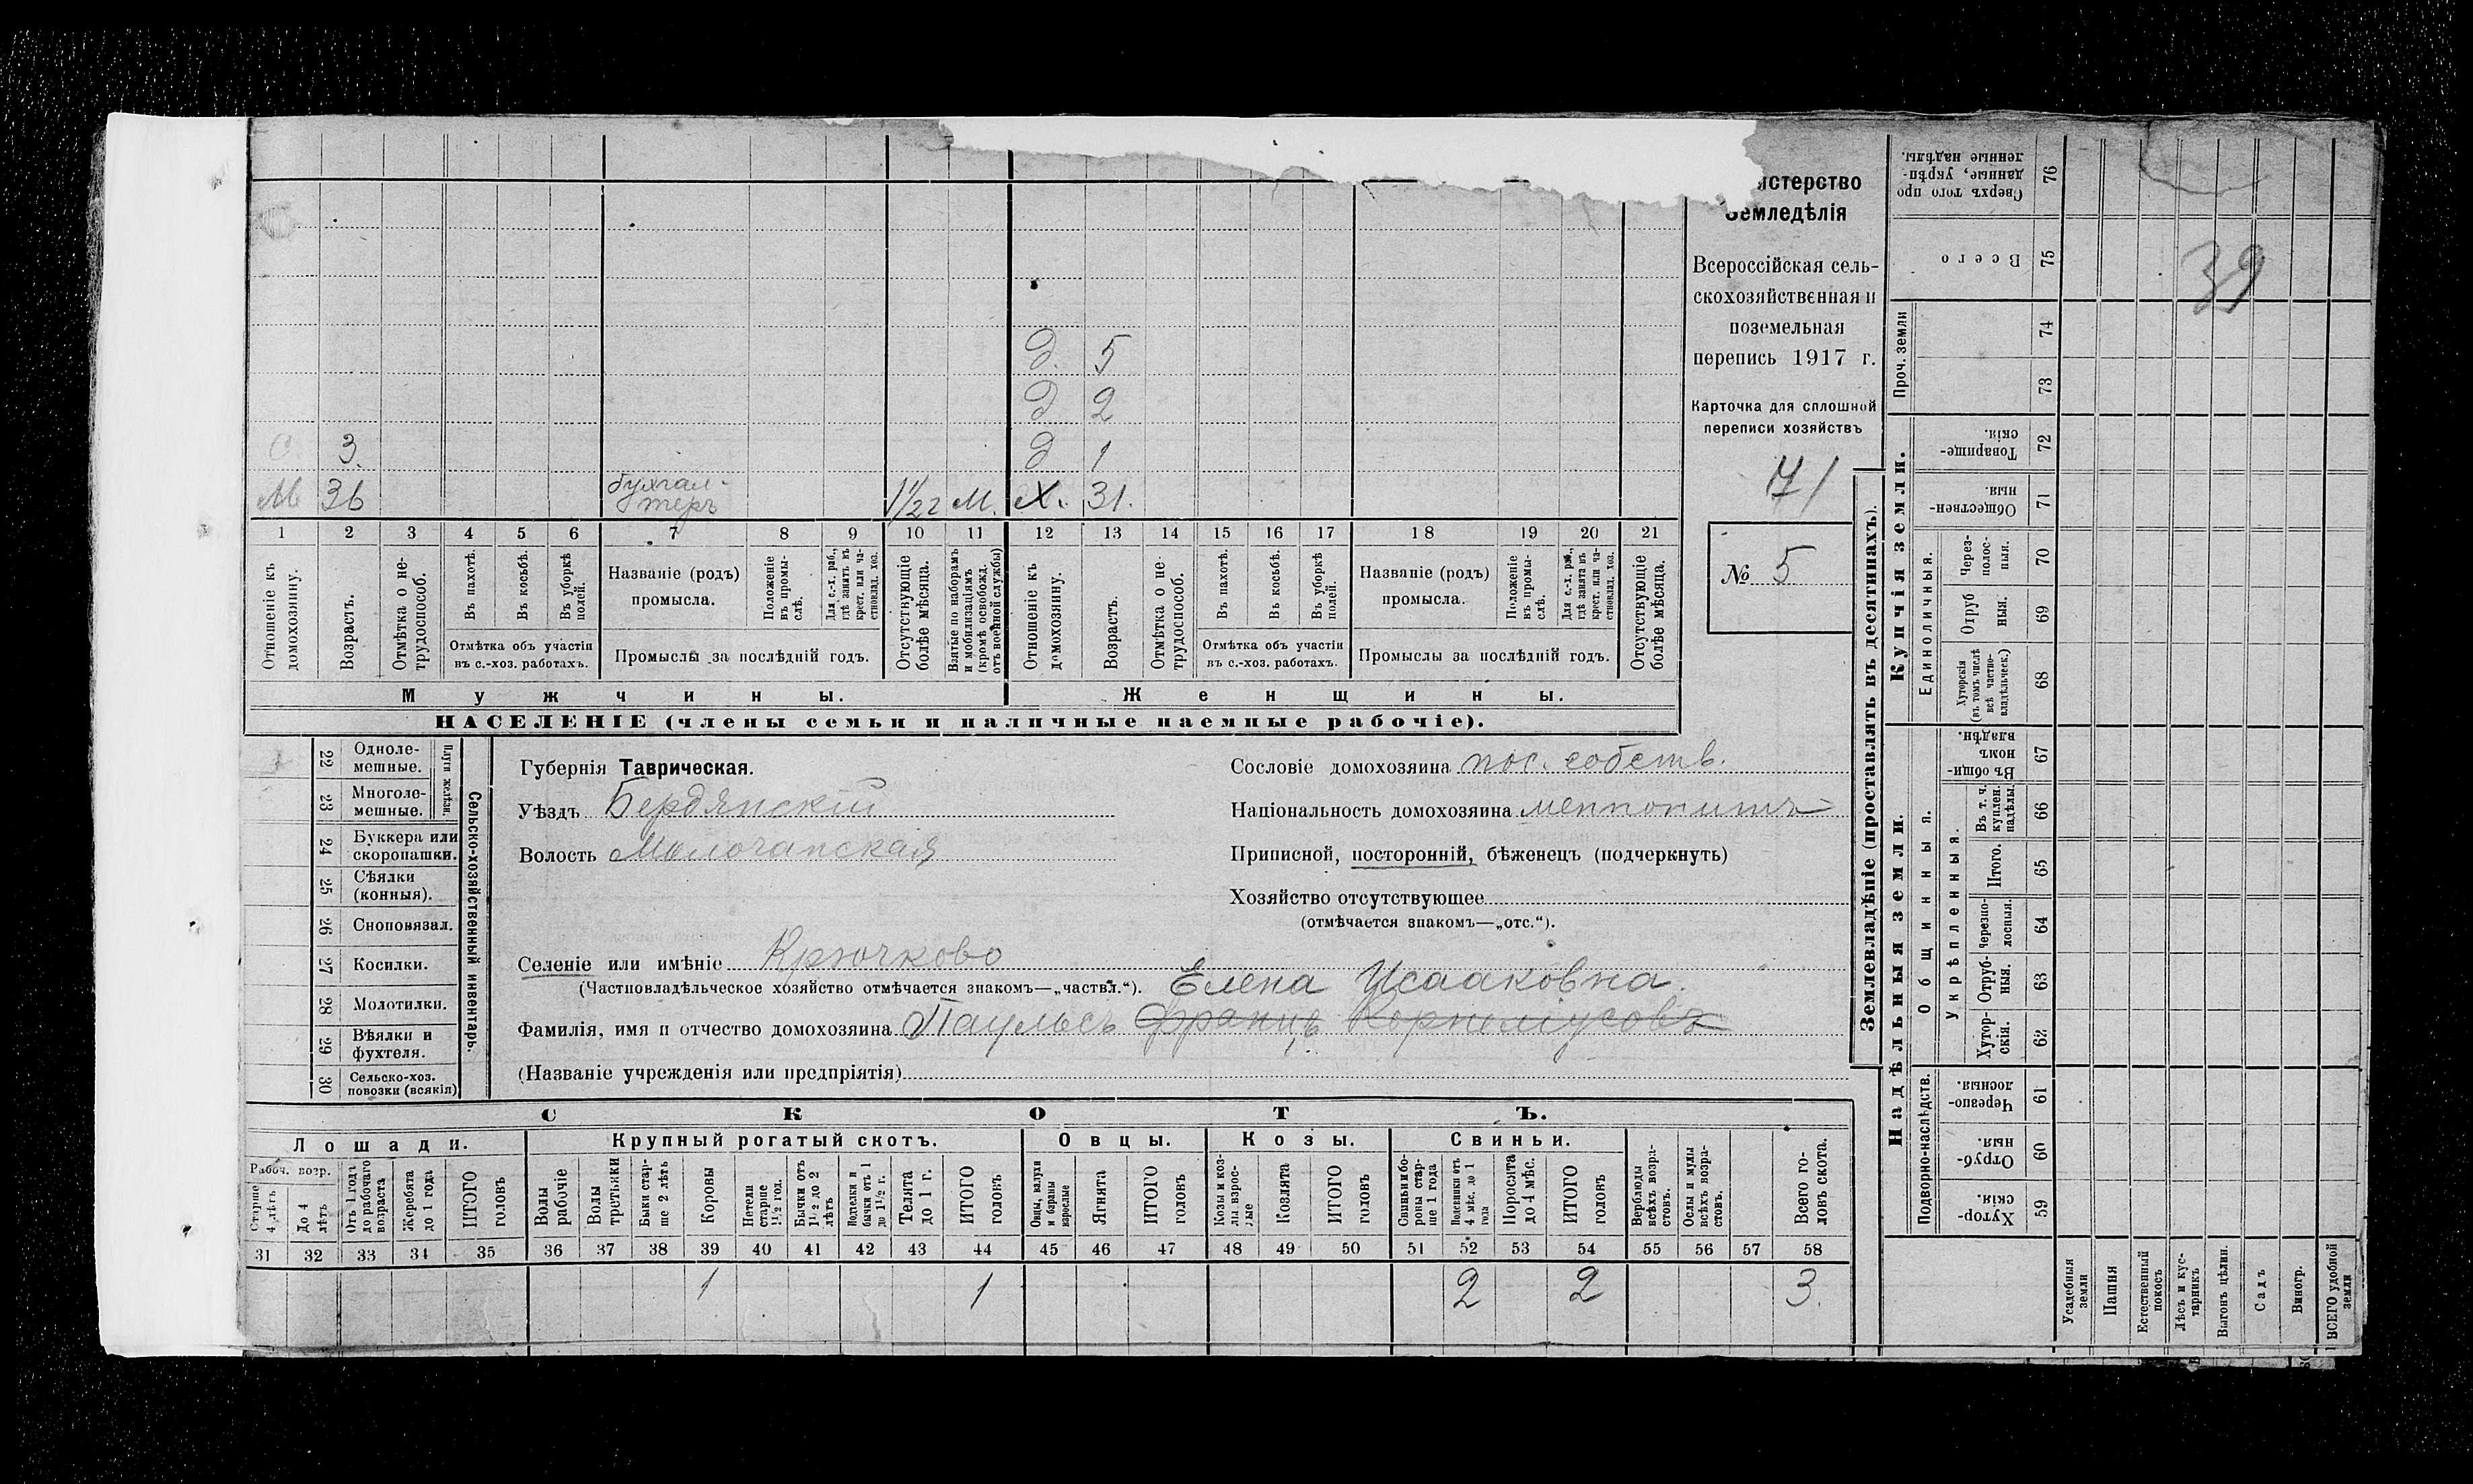 Министерство
Земледѣлія
Всероссійская сель-
скохозяйственная и
поземельная
перепись 1917 г.
Карточка для сплошной
переписи хозяйствъ
71
№ 5
39
д. 5
д 2
с. 3. д 1
М 36 бухгал-
теръ 1 1/2 г М. Х. 31.
1 2 3 4 5 6 7 8 9 10 11 12 13 14 15 16 17 18 19 20 21
Отношеніе къ домохозяину.
Возрастъ.
Отмѣтка о не-трудоспособ.
Въ пахотѣ.
Въ косьбѣ.
Въ уборкѣ полей.
Отмѣтка объ участіи
въ с.-хоз. работахъ.
Названіе (родъ)
промысла.
Положеніе въ промы-слѣ.
Для с.-х. раб., гдѣ занятъ въ крест. или ча-стновлад. хоз.
Промыслы за послѣдній годъ.
Отсутствующіе болѣе мѣсяца.
Взятые по наборамъ и мобилизаціямъ (кромѣ освобожд. отъ военной службы)
Отношеніе къ домохозяину.
Возрастъ.
Отмѣтка о не-трудоспособ.
Въ пахотѣ.
Въ косьбѣ.
Въ уборкѣ полей.
Отмѣтка объ участіи
въ с.-хоз. работахъ.
Названіе (родъ)
промысла.
Положеніе въ промы-слѣ.
Для с.-х. раб., гдѣ занята въ крест. или ча-стновлад. хоз.
Промыслы за послѣдній годъ.
Отсутствующіе болѣе мѣсяца.
Мужчины. Женщины.
НАСЕЛЕНІЕ (члены семьи и наличные наемные рабочіе).
22 Одноле-мешные.
23 Многоле-мешные.
Плуги желѣзн.
24 Буккера или скоропашки.
25 Сѣялки (конныя).
26 Сноповязал.
27 Косилки.
28 Молотилки.
29 Вѣялки и фухтеля.
30 Сельско-хоз. повозки (всякія)
Сельско-хозяйственный инвентарь.
Губернія Таврическая.
Уѣздъ Бердянскій
Волость Молочанская
Сословіе домохозяина пос. собств.
Національность домохозяина меннонитъ
Приписной, посторонній, бѣженецъ (подчеркнуть)
Хозяйство отсутствующее
(отмѣчается знакомъ—„отс.“).
Селеніе или имѣніе Крючково
(Частновладѣльческое хозяйство отмѣчается знакомъ—„частвл.“). Елена Исааковна.
Фамилія, имя и отчество домохозяина Паульсъ Францъ Корнеліусовъ
(Названіе учрежденія или предпріятія)
СКОТЪ.
Лошади. Крупный рогатый скотъ. Овцы. Козы. Свиньи.
Рабоч. возр.
Старше 4 лѣтъ
До 4 лѣтъ
Отъ 1 года до рабочаго возраста
Жеребята до 1 года
ИТОГО головъ
Волы рабочіе
Волы третьяки
Быки стар-ше 2 лѣтъ
Коровы
Нетели старше 1½ год.
Бычки отъ 1½ до 2 лѣтъ
Нетелки и бычки отъ 1 до 1½ г.
Телята до 1 г.
ИТОГО головъ
Овцы, валухи и бараны взрослые
Ягнята
ИТОГО головъ
Козы и коз-лы взрос-лые
Козлята
ИТОГО головъ
Свиньи и бо-роны стар-ше 1 года
Подсвинки отъ 4 мѣс. до 1 года
Поросята до 4 мѣс.
ИТОГО головъ
Верблюды всѣхъ возра-стовъ.
Ослы и мулы всѣхъ возра-стовъ.
Всего го-ловъ скота.
31 32 33 34 35 36 37 38 39 40 41 42 43 44 45 46 47 48 49 50 51 52 53 54 55 56 57 58
1 1 2 2 3.
Землевладѣніе (проставлять въ десятинахъ).
Купчія земли.
Надѣльныя земли.
Проч. земли
Единоличныя.
Общинныя.
Укрѣпленныя.
Подворно-наслѣдств.
Сверхъ того про данные, укрѣп-ленные надѣлы. 76
Всего 75
74
73
Товарище-скія. 72
Обществен-ныя. 71
Через-полос-ныя. 70
Отруб ныя. 69
Хуторскія (въ томъ числѣ всѣ частно-владѣльческ.) 68
Въ общи-номъ владѣн. 67
Въ т. ч. куплен. надѣлы. 66
Итого. 65
Черезпо-лосныя. 64
Отруб-ныя. 63
Хутор-скія. 62
Черезпо-лосныя. 61
Отруб-ныя. 60
Хутор-скія. 59
Усадебныя земли
Пашня
Естественный покосъ
Лѣсъ и кус-тарникъ
Выгонъ цѣлин.
Садъ
Виногр.
ВСЕГО удобной земли